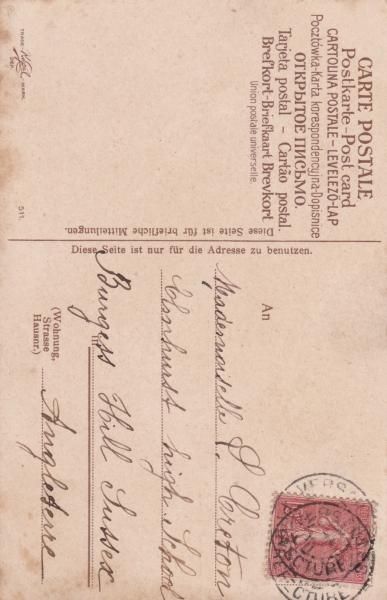 CARTE POSTALE
Postkarte-Post card
CARTOLINA POSTALE-LEVELEZŐ-LAP
Pocztówka-Karta korespondencyjna-Dopisnice
ОТКРЫТОЕ ПИСЬМО.
Tarjeta postal - Cartão postal
Brefkort-Briefkaart Brevkort
Union postale universelle.
TRADE MARK.
511.
Diese Seite ist für briefliche Mitteilungen.
Diese Seite ist nur für die Adresse zu benutzen.
An
Mademoiselle L. Creton
Elmhurst High School
in
Burgess Hill Sussex
(Wohnung, Strasse Hausnr.)
Angleterre